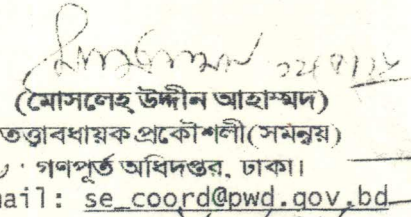 (মোসলেহ্ উদ্দীন আহাম্মদ)
তত্ত্বাবধায়ক প্রকৌশলী(সমন্বয়)
গণপূর্ত অধিদপ্তর, ঢাকা।
mail: se_coord@pwd.gov.bd